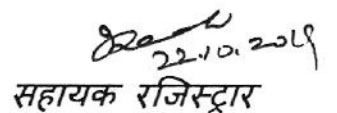 22.10.2019
सहायक रजिस्ट्रार